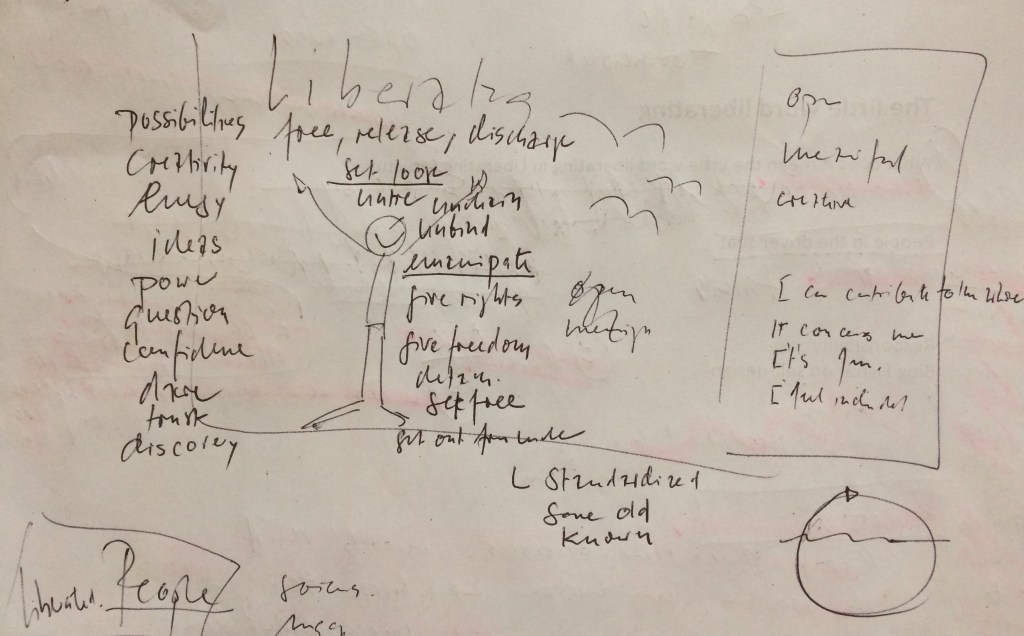 Liberating
free, release, discharge
set loose
untie unchain
unbind
emancipate
give rights
give freedom
set free
get out from under
possibilities
Creativity
Energy
ideas
power
question
confidence
trust
discovery
open
open
creative
I can contribute to the whole
It concerns me
It's fun.
I feel included
Standardized
Same old
Known
Liberated. People
The little word liberating
People in the driver seat